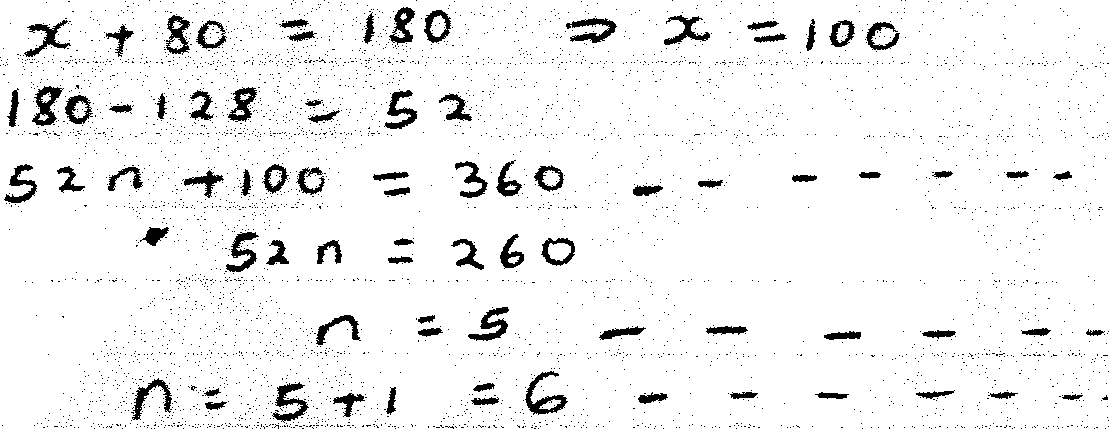 x + 80 = 180 ⇒ x = 100
180 - 128 = 52
52n + 100 = 360 - - - - - - -
52n = 260
n = 5 - - - - - -
n = 5 + 1 = 6 - - - - - - -